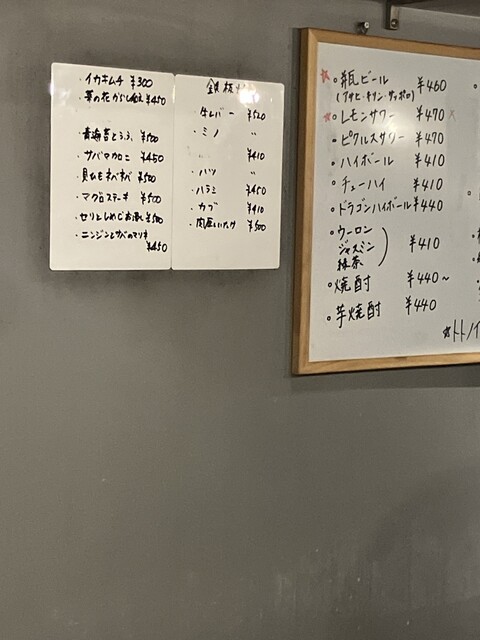 ・イカキムチ ¥300
・菜の花からし和え ¥450
・青海苔とろろ ¥500
・サバマカロニ ¥450
・貝ひもネバネバ ¥500
・マグロステーキ ¥500
・セリとしめじお浸し ¥500
・ニンジンとサバのマリネ
¥450
鉄板
牛レバー ¥520
・ミノ 〃
¥410
・ハツ 〃
・ハラミ ¥450
・カブ ¥410
・肉厚しいたけ ¥500
☆○瓶ビール ¥460
(アサヒ・キリン・サッポロ)
☆○レモンサワー ¥470
○ピクルスサワー ¥470
○ハイボール ¥410
○チューハイ ¥410
○ドラゴンハイボール ¥440
○ウーロン
ジャスミン ) ¥410
緑茶
○焼酎 ¥440~
○芋焼酎 ¥440
☆トトノイ